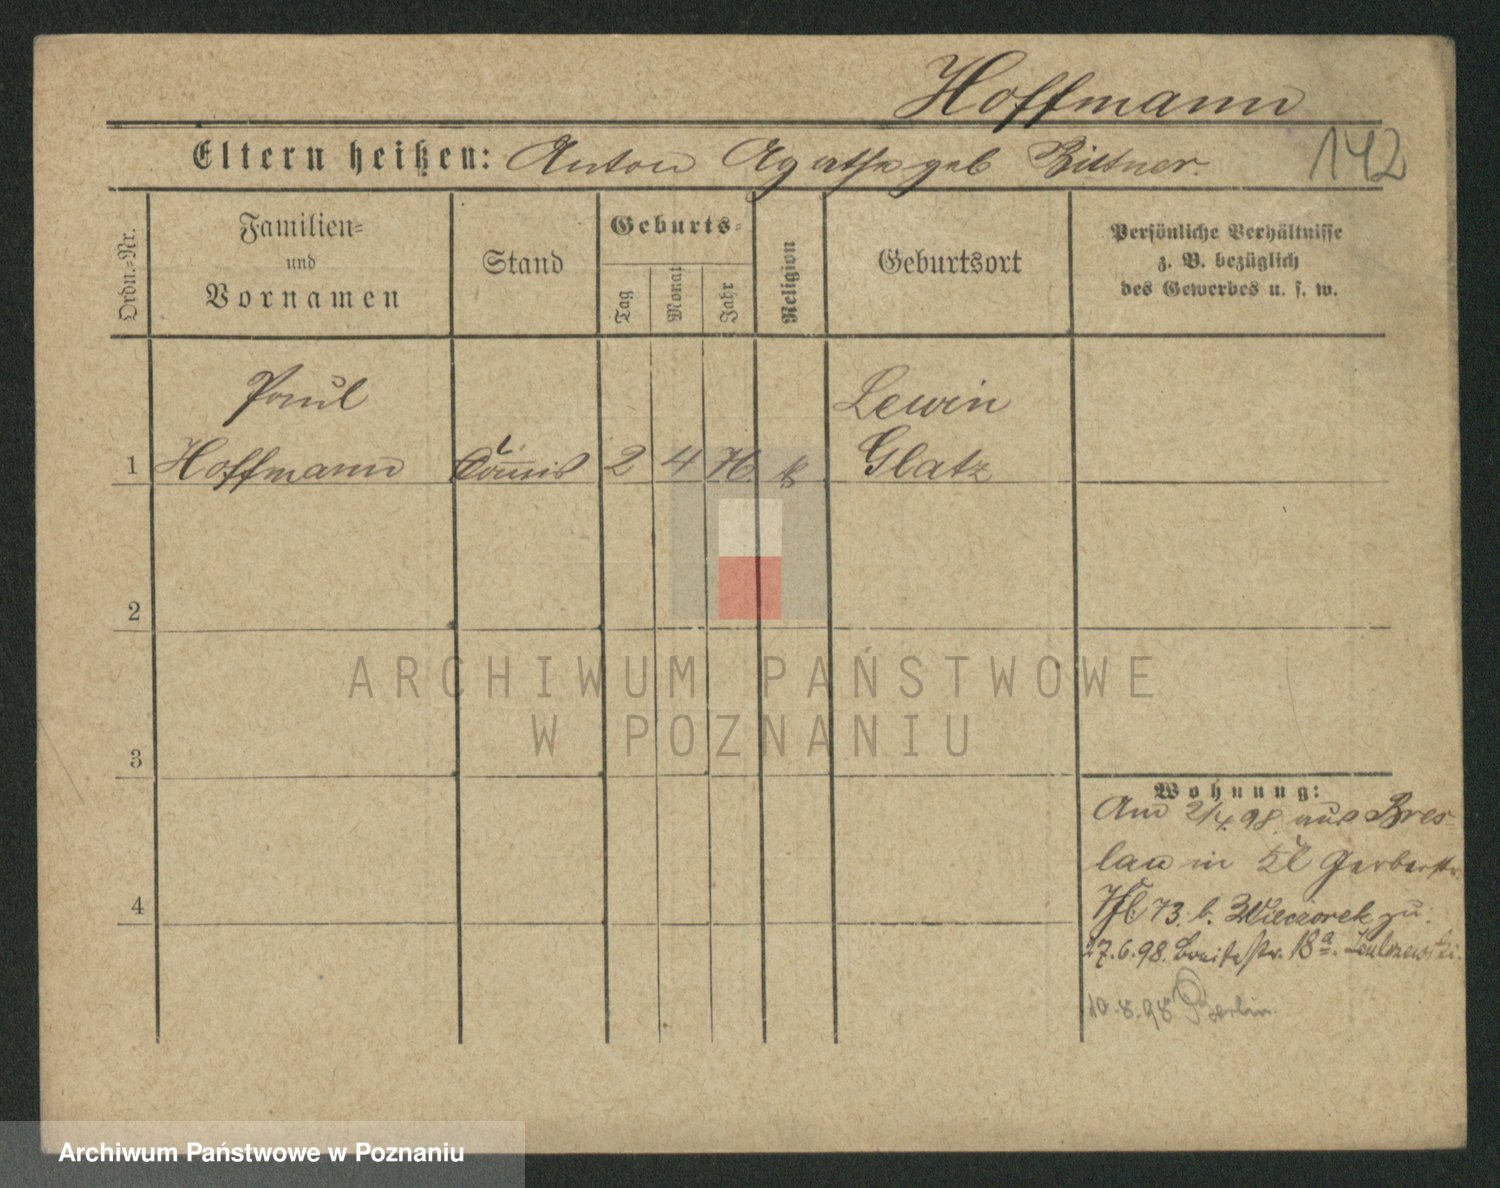 Hoffmann
Eltern heißen: Anton Agathe geb Bittner.
142
Ordn.-Nr.
Familien-
und
Vornamen
Stand
Geburts-
Tag
Monat
Jahr
Religion
Geburtsort
Persönliche Verhältnisse
z. B. bezüglich
des Gewerbes u. s. w.
Paul
Lewin
1 Hoffmann Commis 2 4 76 k Glatz
2
ARCHIWUM PAŃSTWOWE
W POZNANIU
3
Wohnung:
Am 2/4 98. aus Bres-
lau in Kl Gerberstr.
73. b. Wieczorek zu.
4
27.6.98. Breitestr. 18a.
10.8.98 Berlin
Archiwum Państwowe w Poznaniu